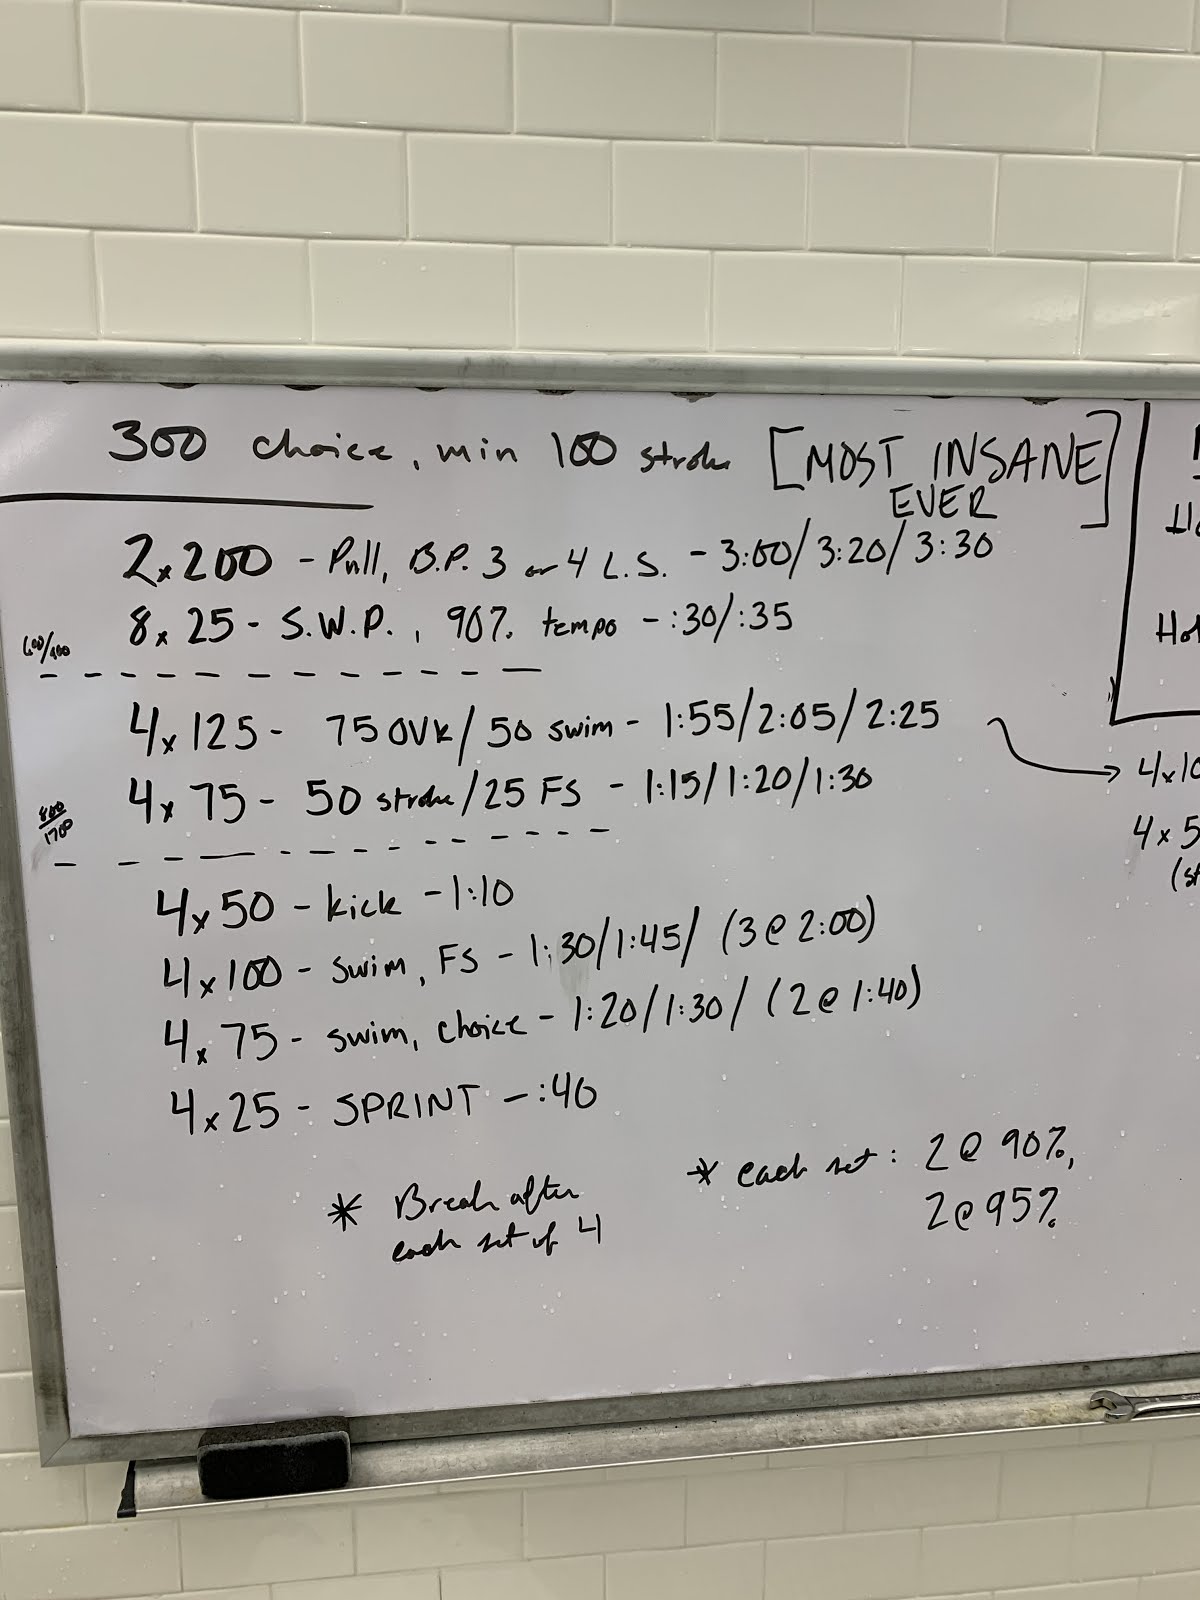 300 choice, min 100 stroke [MOST INSANE EVER]
2x200 - Pull, B.P. 3 or 4 L.S. - 3:00/3:20/3:30
8x25 - S.W.P., 90% tempo - :30/:35
600/900
4x125 - 75 OVK/50 swim - 1:55/2:05/2:25
4x75 - 50 stroke/25 FS - 1:15/1:20/1:30
800
1700
4x50 - kick - 1:10
4x100 - swim, FS - 1:30/1:45/ (3@2:00)
4x75 - swim, choice - 1:20/1:30/ (2@1:40)
4x25 - SPRINT - :40
* Break after
each set of 4
* each set: 2@90%,
2@95%
Hol
4x10
4x5
(st